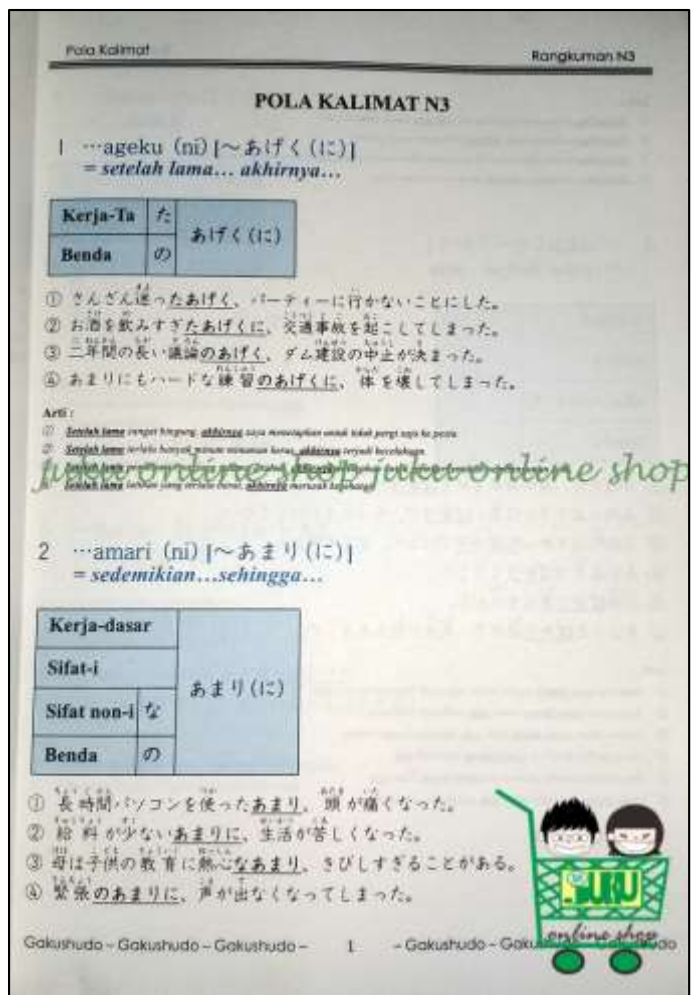 Pola Kalimat
Rangkuman N3
POLA KALIMAT N3
1 …ageku (ni) [～あげく(に)]
= setelah lama… akhirnya…
Kerja-Ta た あげく(に)
Benda の
① さんざん迷ったあげく、パーティーに行かないことにした。
② お酒を飲みすぎたあげくに、交通事故を起こしてしまった。
③ 二年間の長い議論のあげく、ダム建設の中止が決まった。
④ あまりにもハードな練習のあげくに、体を壊してしまった。
Arti :
① Setelah lama sangat bingung, akhirnya saya menetapkan untuk tidak pergi saja ke pesta.
② Setelah lama terlalu banyak minum minuman keras, akhirnya terjadi kecelakaan.
juku online shop juku online shop
Setelah lama latihan yang terlalu berat, akhirnya merusak
2 …amari (ni) [～あまり(に)]
= sedemikian…sehingga…
Kerja-dasar
Sifat-i
あまり(に)
Sifat non-i な
Benda の
① 長時間パソコンを使ったあまり、頭が痛くなった。
② 給料が少ないあまりに、生活が苦しくなった。
③ 母は子供の教育に熱心なあまり、きびしすぎることがある。
④ 緊張のあまりに、声が出なくなってしまった。
BUKU
online shop
Gakushudo – Gakushudo – Gakushudo – 1 – Gakushudo –